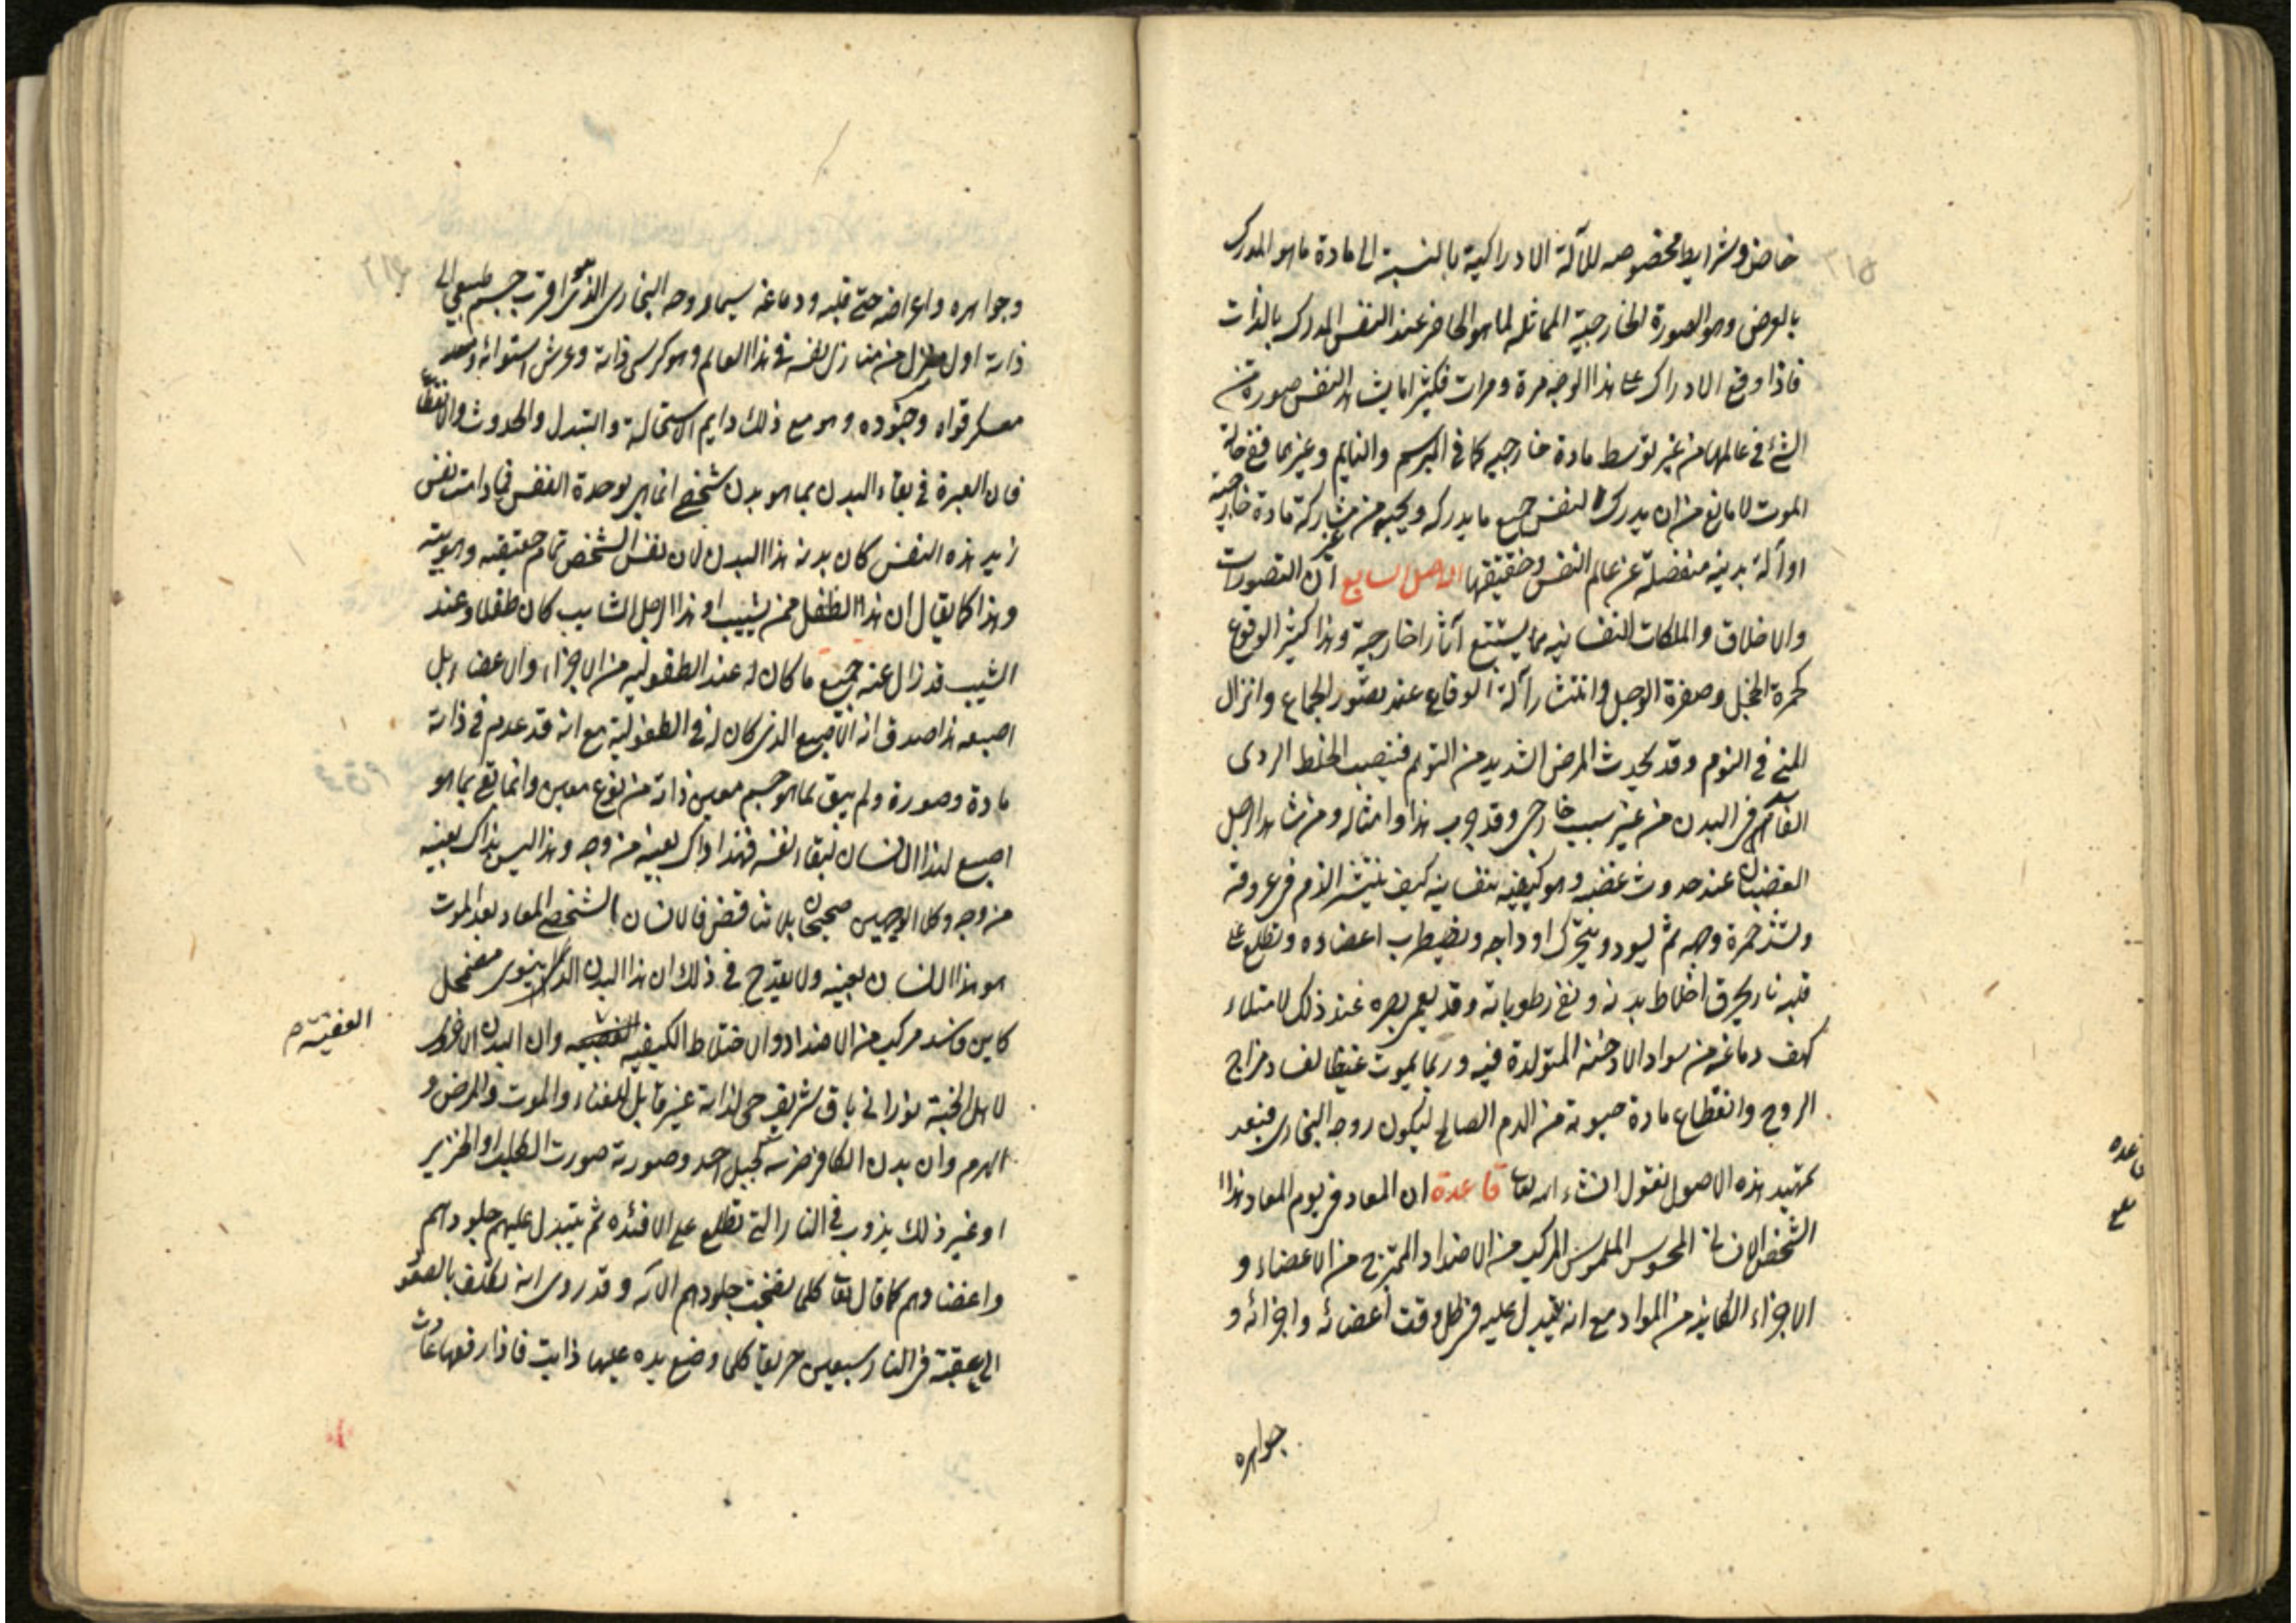 ٣١٥
خاص و شرايط مخصوصه للآلة الادراكية بالنسبة الى مادة ما هو المدرك
بالعرض وهو الصورة الخارجية المماثله لما هو الحاضر عند النفس المدرك بالذات
فاذا وقع الادراك على هذا الوجه مرة و مرات فكثيرا ما يشاهد النفس صورة من
الشئ في عالمها من غير توسط مادة خارجيه كما في المبرسم والنايم وغيرهما ففي حالة
الموت لا مانع من ان يدرك النفس جميع ما يدركه و يحبه من غير مشاركة مادة خارجية
او آلة بدنيه منفصلة عن عالم النفس و حقيقتها الاصل السابع ان التصورات
والاخلاق والملكات النفسانيه مما يستتبع آثارا خارجية وهذا كثير الوقوع
كحمرة الخجل وصفرة الوجل و انتشار آلة الوقاع عند تصور الجماع وانزال
المنى في النوم وقد يحدث المرض الشديد من التوهم فينصب الخلط الردى
الفآسد فى البدن من غير سبب خارجى وقد جرب هذا و امثاله ومن شاهد الرجل
الغضبان عند حدوث غضبه و هو كيفيه نفسانيه كيف ينتشر الدم فى عروقه
ويشتد حمرة وجهه ثم يسود و يتحرك اوداجه ويضطرب اعضاده وتطلع على
قلبه نار يحرق اخلاط بدنه و تفنى رطوباته وقد يعمى بصره عند ذلك لامتلاء
كهف دماغه من سواد الادخنه المتولدة فيه وربما يموت غيظا لفساد مزاج
الروح وانقطاع مادة حيوته من الدم الصالح ليكون روحه البخارى فبعد
تمهيد هذه الاصول نقول انشاء الله تعالى قاعدة ان المعاد فى يوم المعاد هذا
الشخص الانسانى المحسوس الملموس المركب من الاضداد الممتزج من الاعضاء و
الاجزاء الكاينه من المواد مع انه يتبدل عليه فى كل وقت اعضائه و اجزائه و
جواهره
قاعده
٣١٦
وجواهره واعراضه حتى قلبه ودماغه سيما روحه البخارى الذى هو اقرب جسم طبيعى الى
ذاته اول منزل من منازل نفسه فى هذا العالم وهو كرسى ذاته وعرش استوائه و
معسكر قواه وجنوده وهو مع ذلك دايم الاستحالة والتبدل والحدوث والانقطاع
فان العبرة فى بقاء البدن بما هو بدن شخصى انما هى بوحدة النفس فما دامت نفس
زيد هذه النفس كان بدنه هذا البدن لان نفس الشخص تمام حقيقته وهويته
وهذا كما يقال ان هذا الطفل ممن يشيب او هذا الرجل الشايب كان طفلا وعند
الشيب قد زال عنه جميع ما كان له عند الطفوليه من الاجزاء والاعضاء بل
اصبعه هذا صدق انه الاصبع الذى كان له فى الطفولية مع انه قد عدم فى ذاته
مادة وصورة ولم يبق بما هو جسم معين ذاته من نوع معين وانما بقى بما هو
اصبع لهذا الانسان لبقاء نفسه فهذا ذاك بعينه من وجه وهذا ليس بذاك بعينه
من وجه وكلا الوجهين صحيحان بلا تناقض فالانسان الشخصى المعاد بعد الموت
هو هذا الانسان بعينه ولا يقدح فى ذلك ان هذا البدن الدنيوى مضمحل
كاين فاسد مركب من الاضداد والاختلاط الكثيفه العفنيه وان البدن الاخروى
لاهل الجنة نورانى باق شريف حى لذاته غير قابل للفناء والموت والمرض و
الهرم وان بدن الكافر ضرسه كجبل احد وصورته صورة الكلب او الخنزير
او غير ذلك يذوب فى النار التى تطلع على الافئده ثم يتبدل عليهم جلودهم
واعضاوهم كما قال تعالى كلما نضجت جلودهم الآيه وقد روى انه يكلف بالصعود
الى عقبة فى النار سبعين خريفا كلما وضع يده عليها ذابت فاذا رفعها عادت
العفنيه